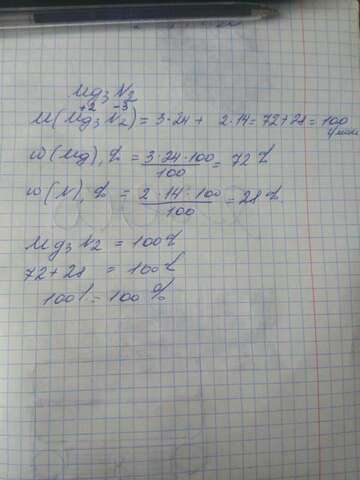 Mg₃N₂
+2 -3
M(Mg₃N₂) = 3·24 + 2·14 = 72+28 = 100 г/моль
ω(Mg), % = 3·24·100 / 100 = 72 %
ω(N), % = 2·14·100 / 100 = 28 %
Mg₃N₂ = 100%
72+28 = 100%
100% = 100%